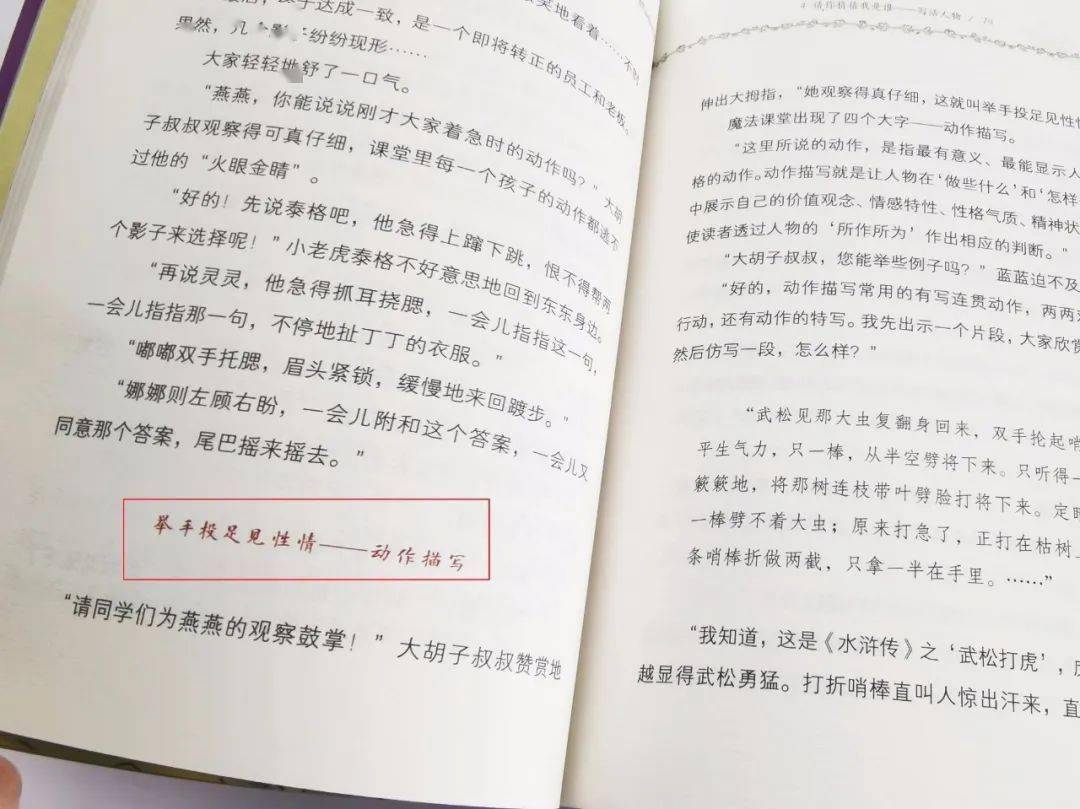 达成一致，是一个即将转正的员工和老板。
果然，几
纷纷现形……
大家轻轻地舒了一口气。
“燕燕，你能说说刚才大家着急时的动作吗？”大胡
子叔叔观察得可真仔细，课堂里每一个孩子的动作都逃不
过他的“火眼金睛”。
“好的！先说泰格吧，他急得上蹿下跳，恨不得帮两
个影子来选择呢！”小老虎泰格不好意思地回到东东身边。
“再说灵灵，他急得抓耳挠腮，一会儿指指这一句，
一会儿指指那一句，不停地扯丁丁的衣服。”
“嘟嘟双手托腮，眉头紧锁，缓慢地来回踱步。”
“娜娜则左顾右盼，一会儿附和这个答案，一会儿又
同意那个答案，尾巴摇来摇去。”
举手投足见性情——动作描写
“请同学们为燕燕的观察鼓掌！”大胡子叔叔赞赏地
4 请你猜猜我是谁——写活人物
伸出大拇指，“她观察得真仔细，这就叫举手投足见性情
魔法课堂出现了四个大字——动作描写。
“这里所说的动作，是指最有意义、最能显示人
格的动作。动作描写就是让人物在‘做些什么’和‘怎样
中展示自己的价值观念、情感特性、性格气质、精神状
使读者透过人物的‘所作所为’作出相应的判断。”
“大胡子叔叔，您能举些例子吗？”蓝蓝迫不及
“好的，动作描写常用的有写连贯动作，两两对
行动，还有动作的特写。我先出示一个片段，大家欣赏
然后仿写一段，怎么样？”
“武松见那大虫复翻身回来，双手抡起哨
平生气力，只一棒，从半空劈将下来。只听得一
簌簌地，将那树连枝带叶劈脸打将下来。定睛
一棒劈不着大虫；原来打急了，正打在枯树上
条哨棒折做两截，只拿一半在手里。……”
“我知道，这是《水浒传》之‘武松打虎’，
越显得武松勇猛。打折哨棒直叫人惊出汗来，直